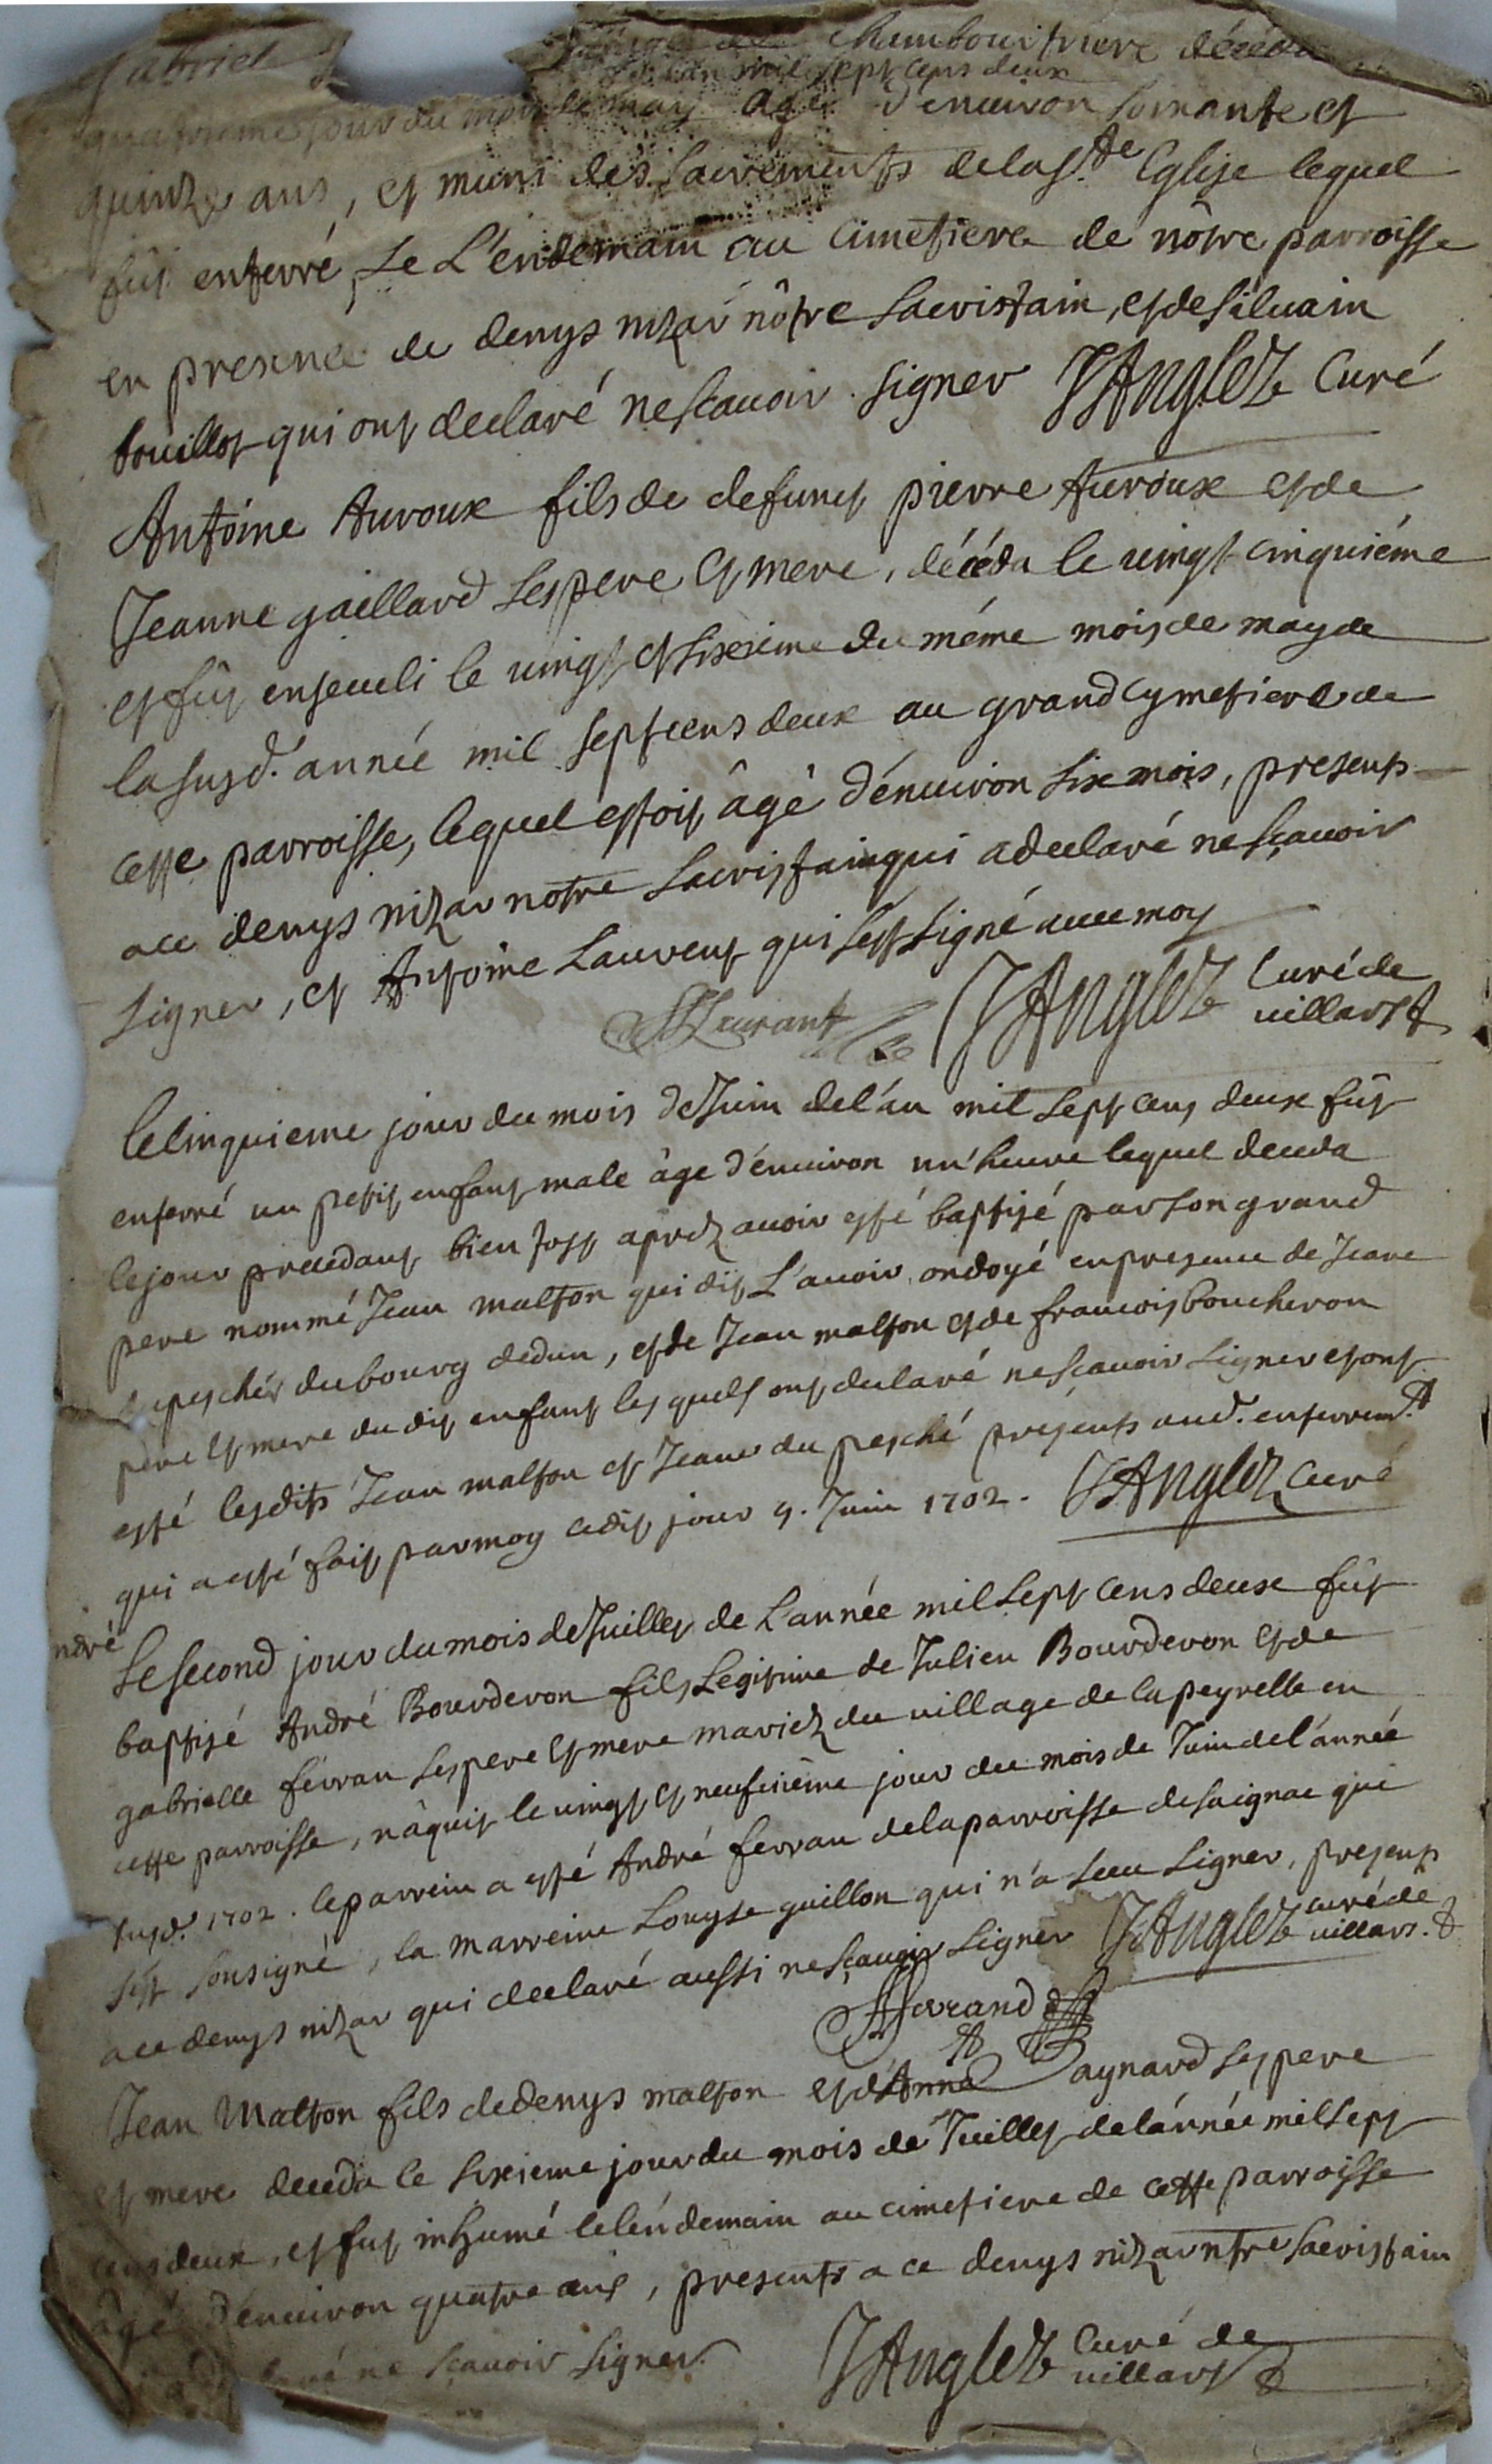 Gabriel chambourniere décéda
l'an mil sept cens deux
quatrieme jour du mois de may agé d'enuiron soixante et
quinze ans, et muni des Sacrements de la Ste Eglise lequel
fût enterré le L'endemain au Cimetiere de nôtre parroisse
en presence de denys nizar nôtre Sacristain, et de Siluain
bouillot qui ont declaré ne scauoir signer JAnglez Curé
Antoine Auroux fils de defunct pierre Auroux et de
Jeanne gaillard ses pere et mere, décéda le uingt cinquiéme
et fût enseueli le uingt et sixieme du méme mois de may de
la susd. année mil sept cens deux au grand Cymetiere de
cette parroisse, lequel estoit âgé d'énuiron six mois, presents
a ce denys nizar notre Sacristain qui a declaré ne sçauoir
signer, et Antoine Laurent qui s'est signé auec moy
ALaurant JAnglez Curé de
uillars
Le cinquieme jour du mois de Juin de l'an mil sept cens deux fût
enterré un petit enfant male âgé d'énuiron un'heure lequel deceda
le jour precedant bien tost aprez auoir esté baptisé par son grand
pere nommé Jean malton qui dit L'auoir ondoyé en presence de Jeane
dupeschér du bourg dedun, et de Jean malton et de francois boucheron
pere et mere du dit enfant les quels ont declaré ne scauoir signer et ont
esté les dits Jean malton et Jeane du pesché presents aud. enterremt
qui a esté fait par moy cedit jour 5. Juin 1702. JAnglez Curé
ndré
Le second jour du mois de Juillet de L'année mil sept cens deux fût
baptisé André Bourderon fils Legitime de Julien Bourderon et de
gabrielle ferran ses pere et mere mariez du uillage de lapeyrelle en
cette parroisse, nâquit le uingt et neufuiéme jour du mois de Juin de l'année
susd. 1702. le parrein a esté André ferran de la parroisse de saignac qui
s'est sousigné, la marreine Louyse guillon qui n'a sceu signer, presents
a ce denys nizar qui declaré aussi ne sçauoir signer JAnglez curé de
uillars.
AFerrand
Jean Malton fils de denys malton et d'Anne Daynard ses pere
et mere deceda le sixieme jour du mois de Juillet de l'année mil sept
cens deux, et fut inhumé le léndemain au cimetiere de cette parroisse
âgé d'énuiron quatre ans, presents a ce denys nizar ntre Sacristain
ne sçauoir signer. JAnglez Curé de
uillars